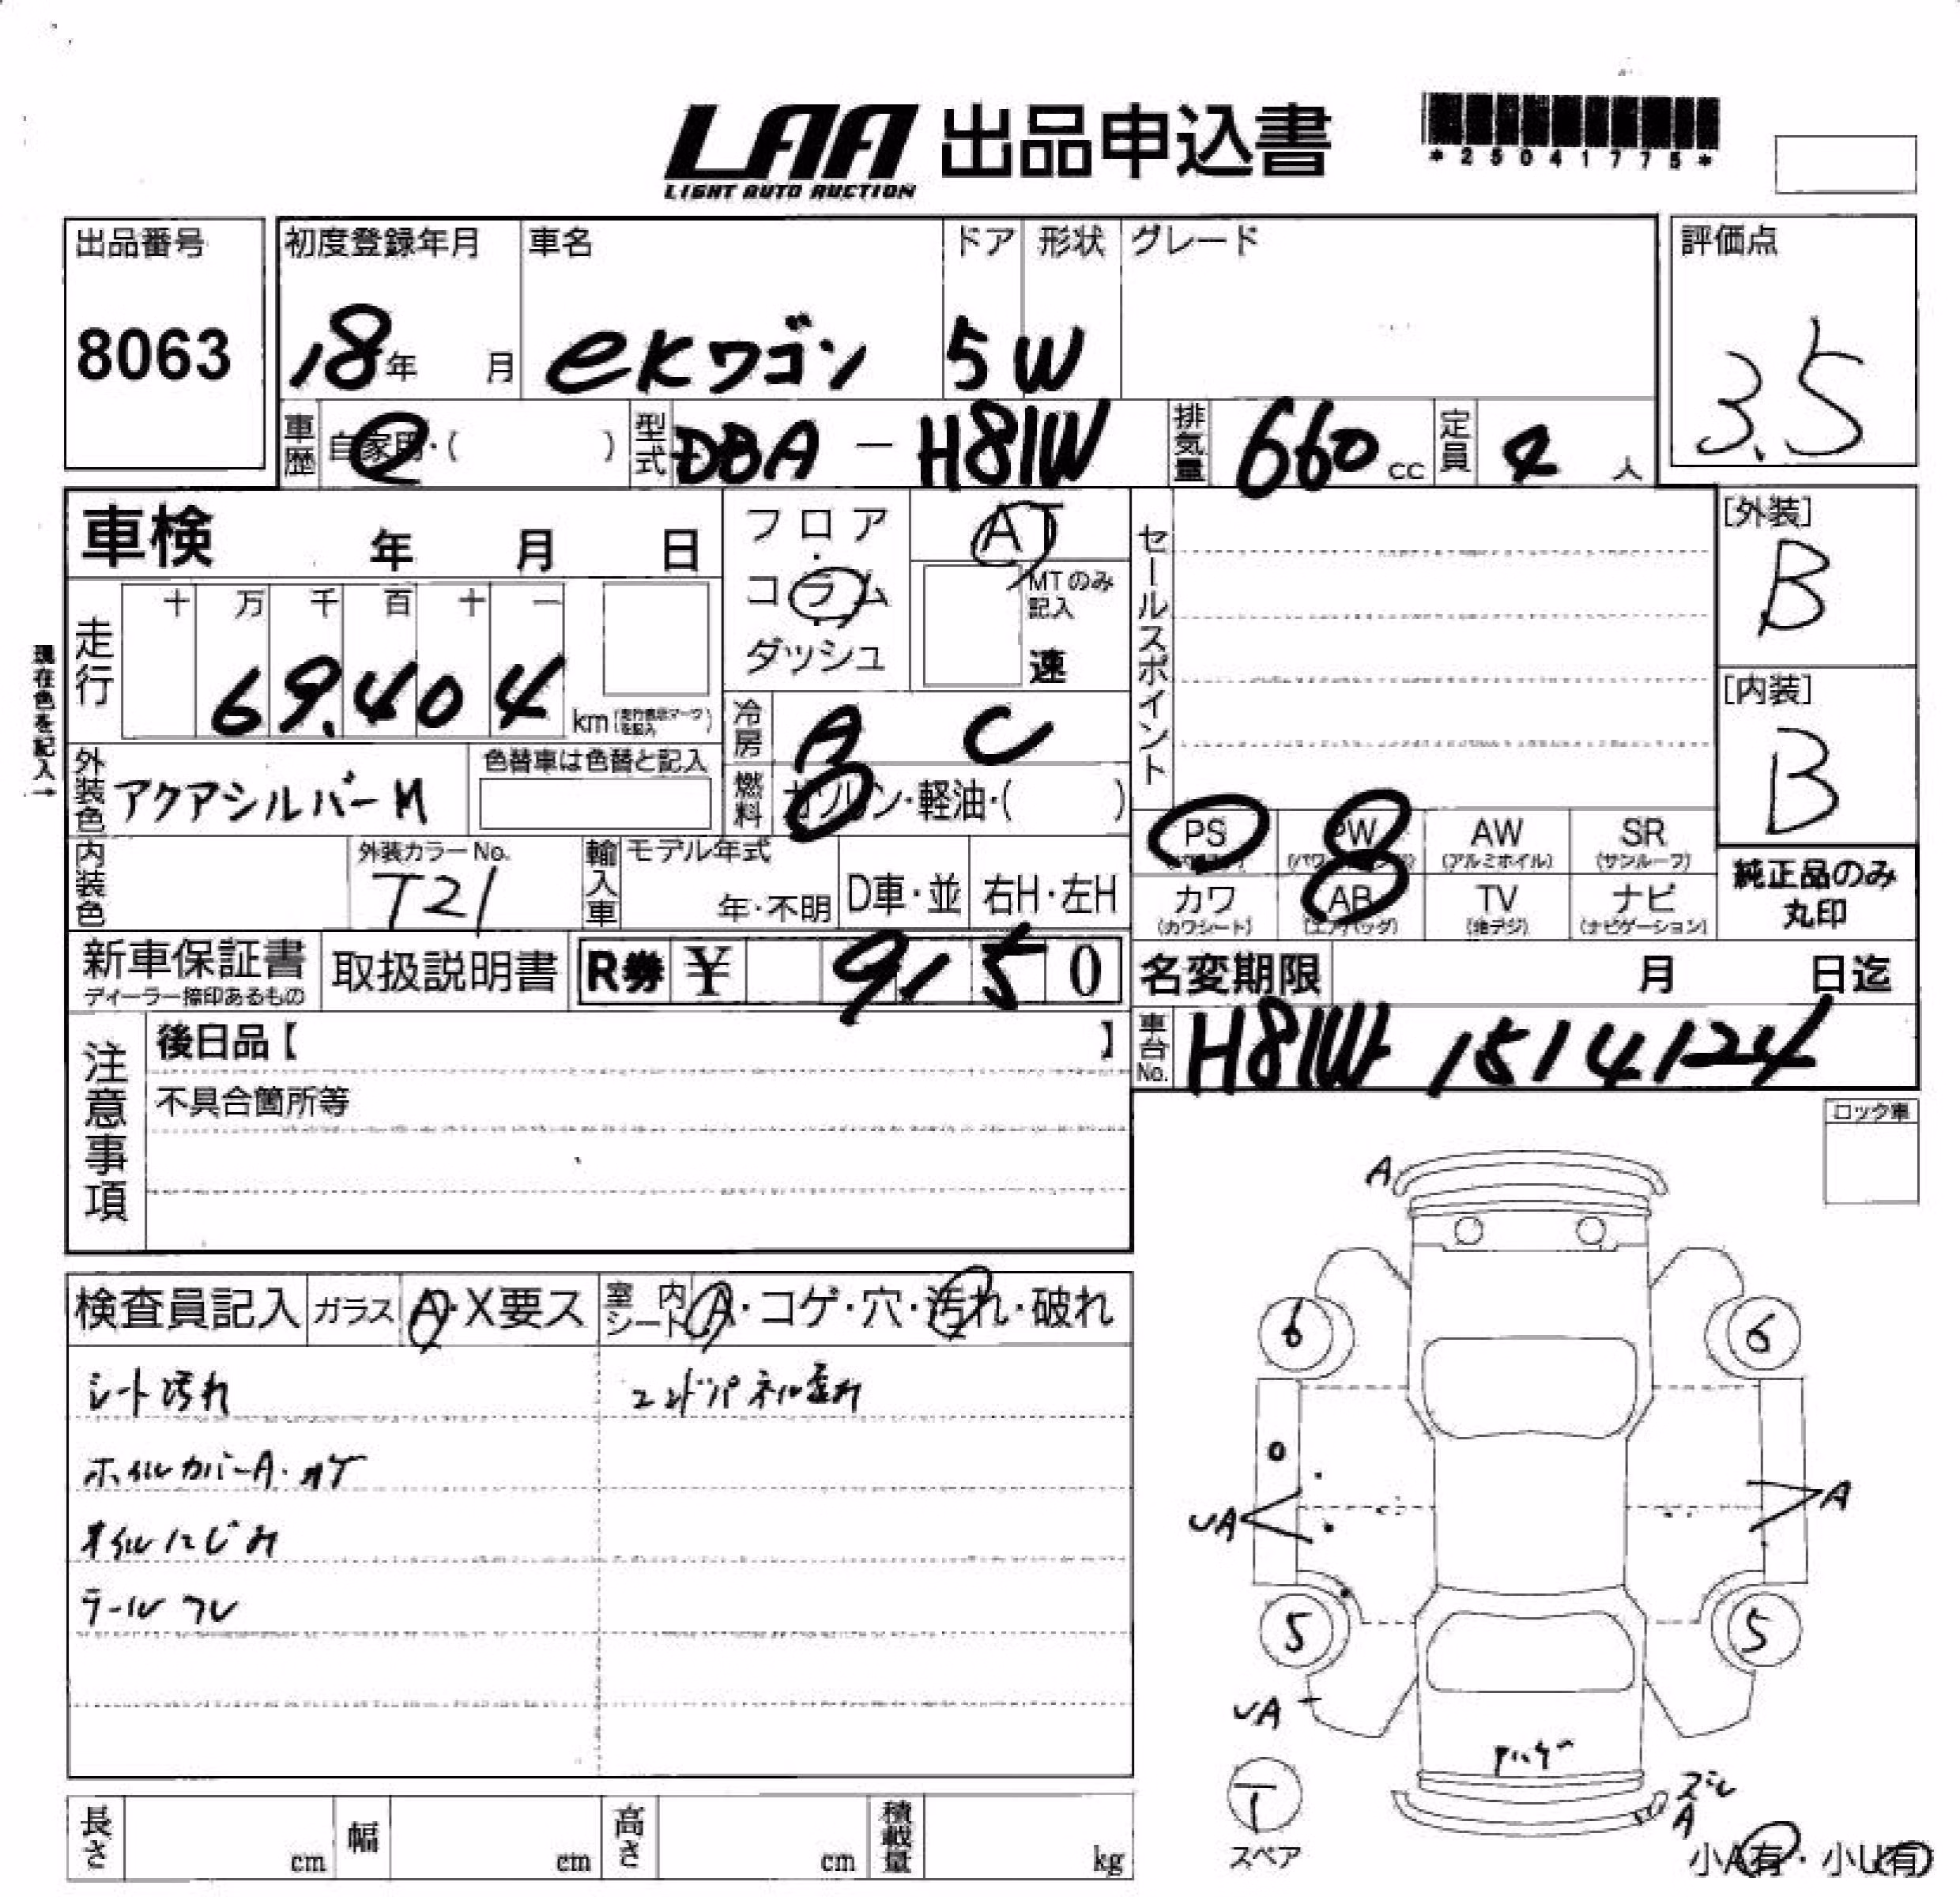 LAA 出品申込書
LIGHT AUTO AUCTION
*25041775*
出品番号 初度登録年月 車名 ドア 形状 グレード 評価点
8063 18年 月 eKワゴン 5 W 3.5
車歴 自家用・( ) 型式 DBA - H81W 排気量 660 cc 定員 4 人
車検 年 月 日
フロア・コラム・ダッシュ
AT
MTのみ記入
速
セールスポイント
[外装]
B
現在色を記入→
走行 十 万 千 百 十 一
69,404 km
[内装]
B
冷房 A C
外装色 アクアシルバーM
色替車は色替と記入
燃料 ガソリン・軽油・( )
PS PW (パワーウィンドウ) AW (アルミホイル) SR (サンルーフ)
内装色
外装カラーNo.
T21
輸入車 モデル年式
年・不明 D車・並 右H・左H
カワ (カワシート) AB (エアバッグ) TV (地デジ) ナビ (ナビゲーション)
純正品のみ
丸印
新車保証書
ディーラー捺印あるもの
取扱説明書 R券 ¥ 9150
名変期限 月 日迄
車台No. H81W 1514124
注意事項
後日品【 】
不具合箇所等
ロック車
検査員記入 ガラス A・X要ス 室内シート A・コゲ・穴・汚れ・破れ
シート汚れ
エンドパネル歪み
ホイルカバーA・カケ
オイルにじみ
テールワレ
A
6 6
UA A
5 5
UA
T
スペア
A
小A有・小U有
長さ cm 幅 cm 高さ cm 積載量 kg